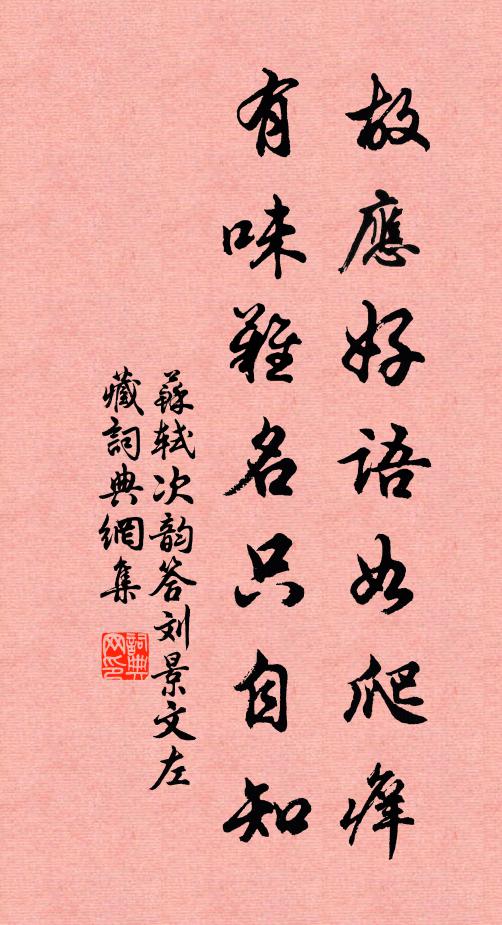 故應好語如爬痒
有味難名只自知
蘇軾次韵答刘景文左
藏詞典網集
詞典网印